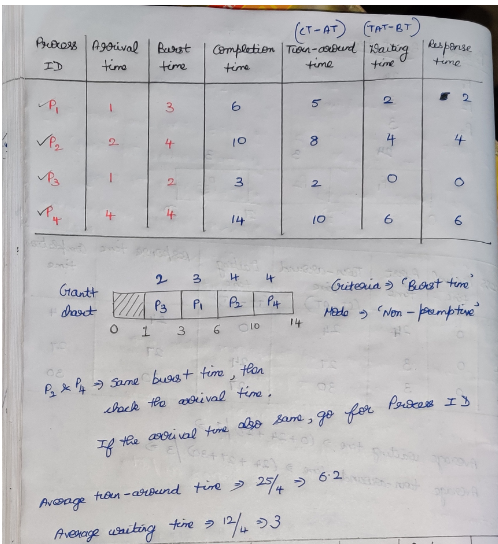 (CT-AT) (TAT-BT)
Process ID Arrival time Burst time Completion time Turn-around time Waiting time Response time
P1 1 3 6 5 2 2
P2 2 4 10 8 4 4
P3 1 2 3 2 0 0
P4 4 4 14 10 6 6
2 3 4 4
Gantt chart P3 P1 P2 P4
0 1 3 6 10 14
Criteria → 'Burst time'
Mode → 'Non-preemptive'
P2 & P4 ⇒ same burst time, then
check the arrival time.
If the arrival time also same, go for Process ID
Average turn-around time ⇒ 25/4 ⇒ 6.2
Average waiting time ⇒ 12/4 ⇒ 3